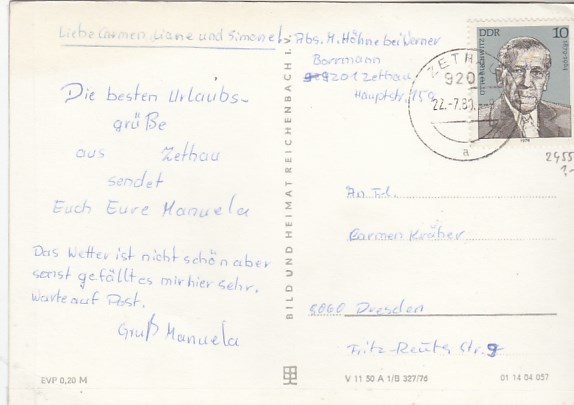 Liebe Carmen, Liane und Simone!
Die besten Urlaubs-
grüße
aus Zethau
sendet
Euch Eure Manuela
Das Wetter ist nicht schön aber
sonst gefällt es mir hier sehr.
Warte auf Post.
Gruß Manuela
EVP 0,20 M
BILD UND HEIMAT REICHENBACH I.
Abs. M. Höhne bei Werner
Borrmann
9201 Zethau
Hauptstr. 15a
ZETH
920
22.-7.80
a
DDR 10
1879-1964
OTTO BUCHWITZ
1979
2455
An Frl.
Carmen Kräher
8060 Dresden
Fritz-Reuter Str. 9
V 11 50 A 1/B 327/76
01 14 04 057